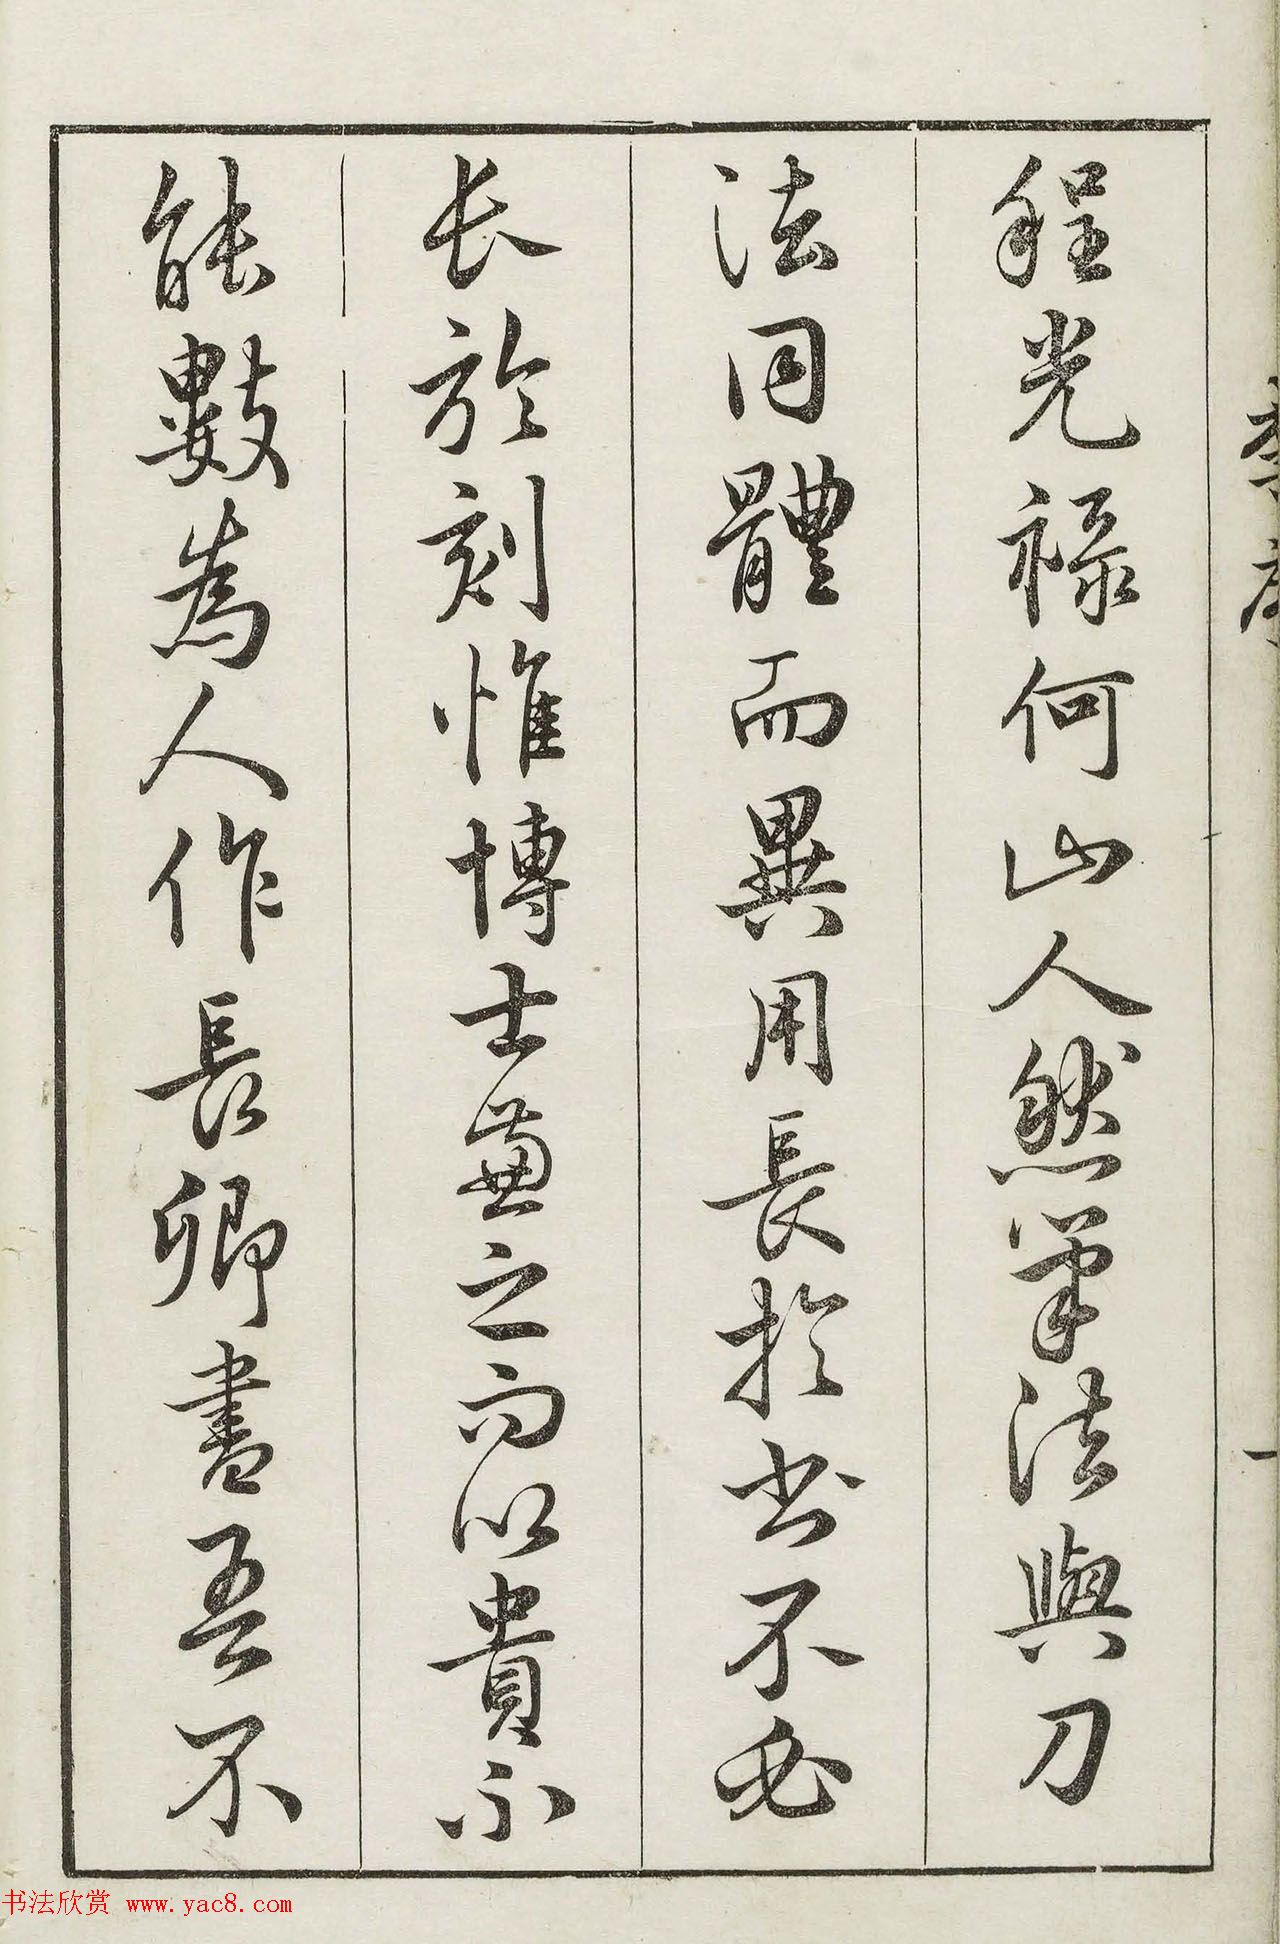 程光禄何山人然筆法與刀
法同體而異用長於书不必
长於刻惟博士兼之而以貴不
能數為人作長卿書吾不
李序
一
书法欣赏 www.yac8.com